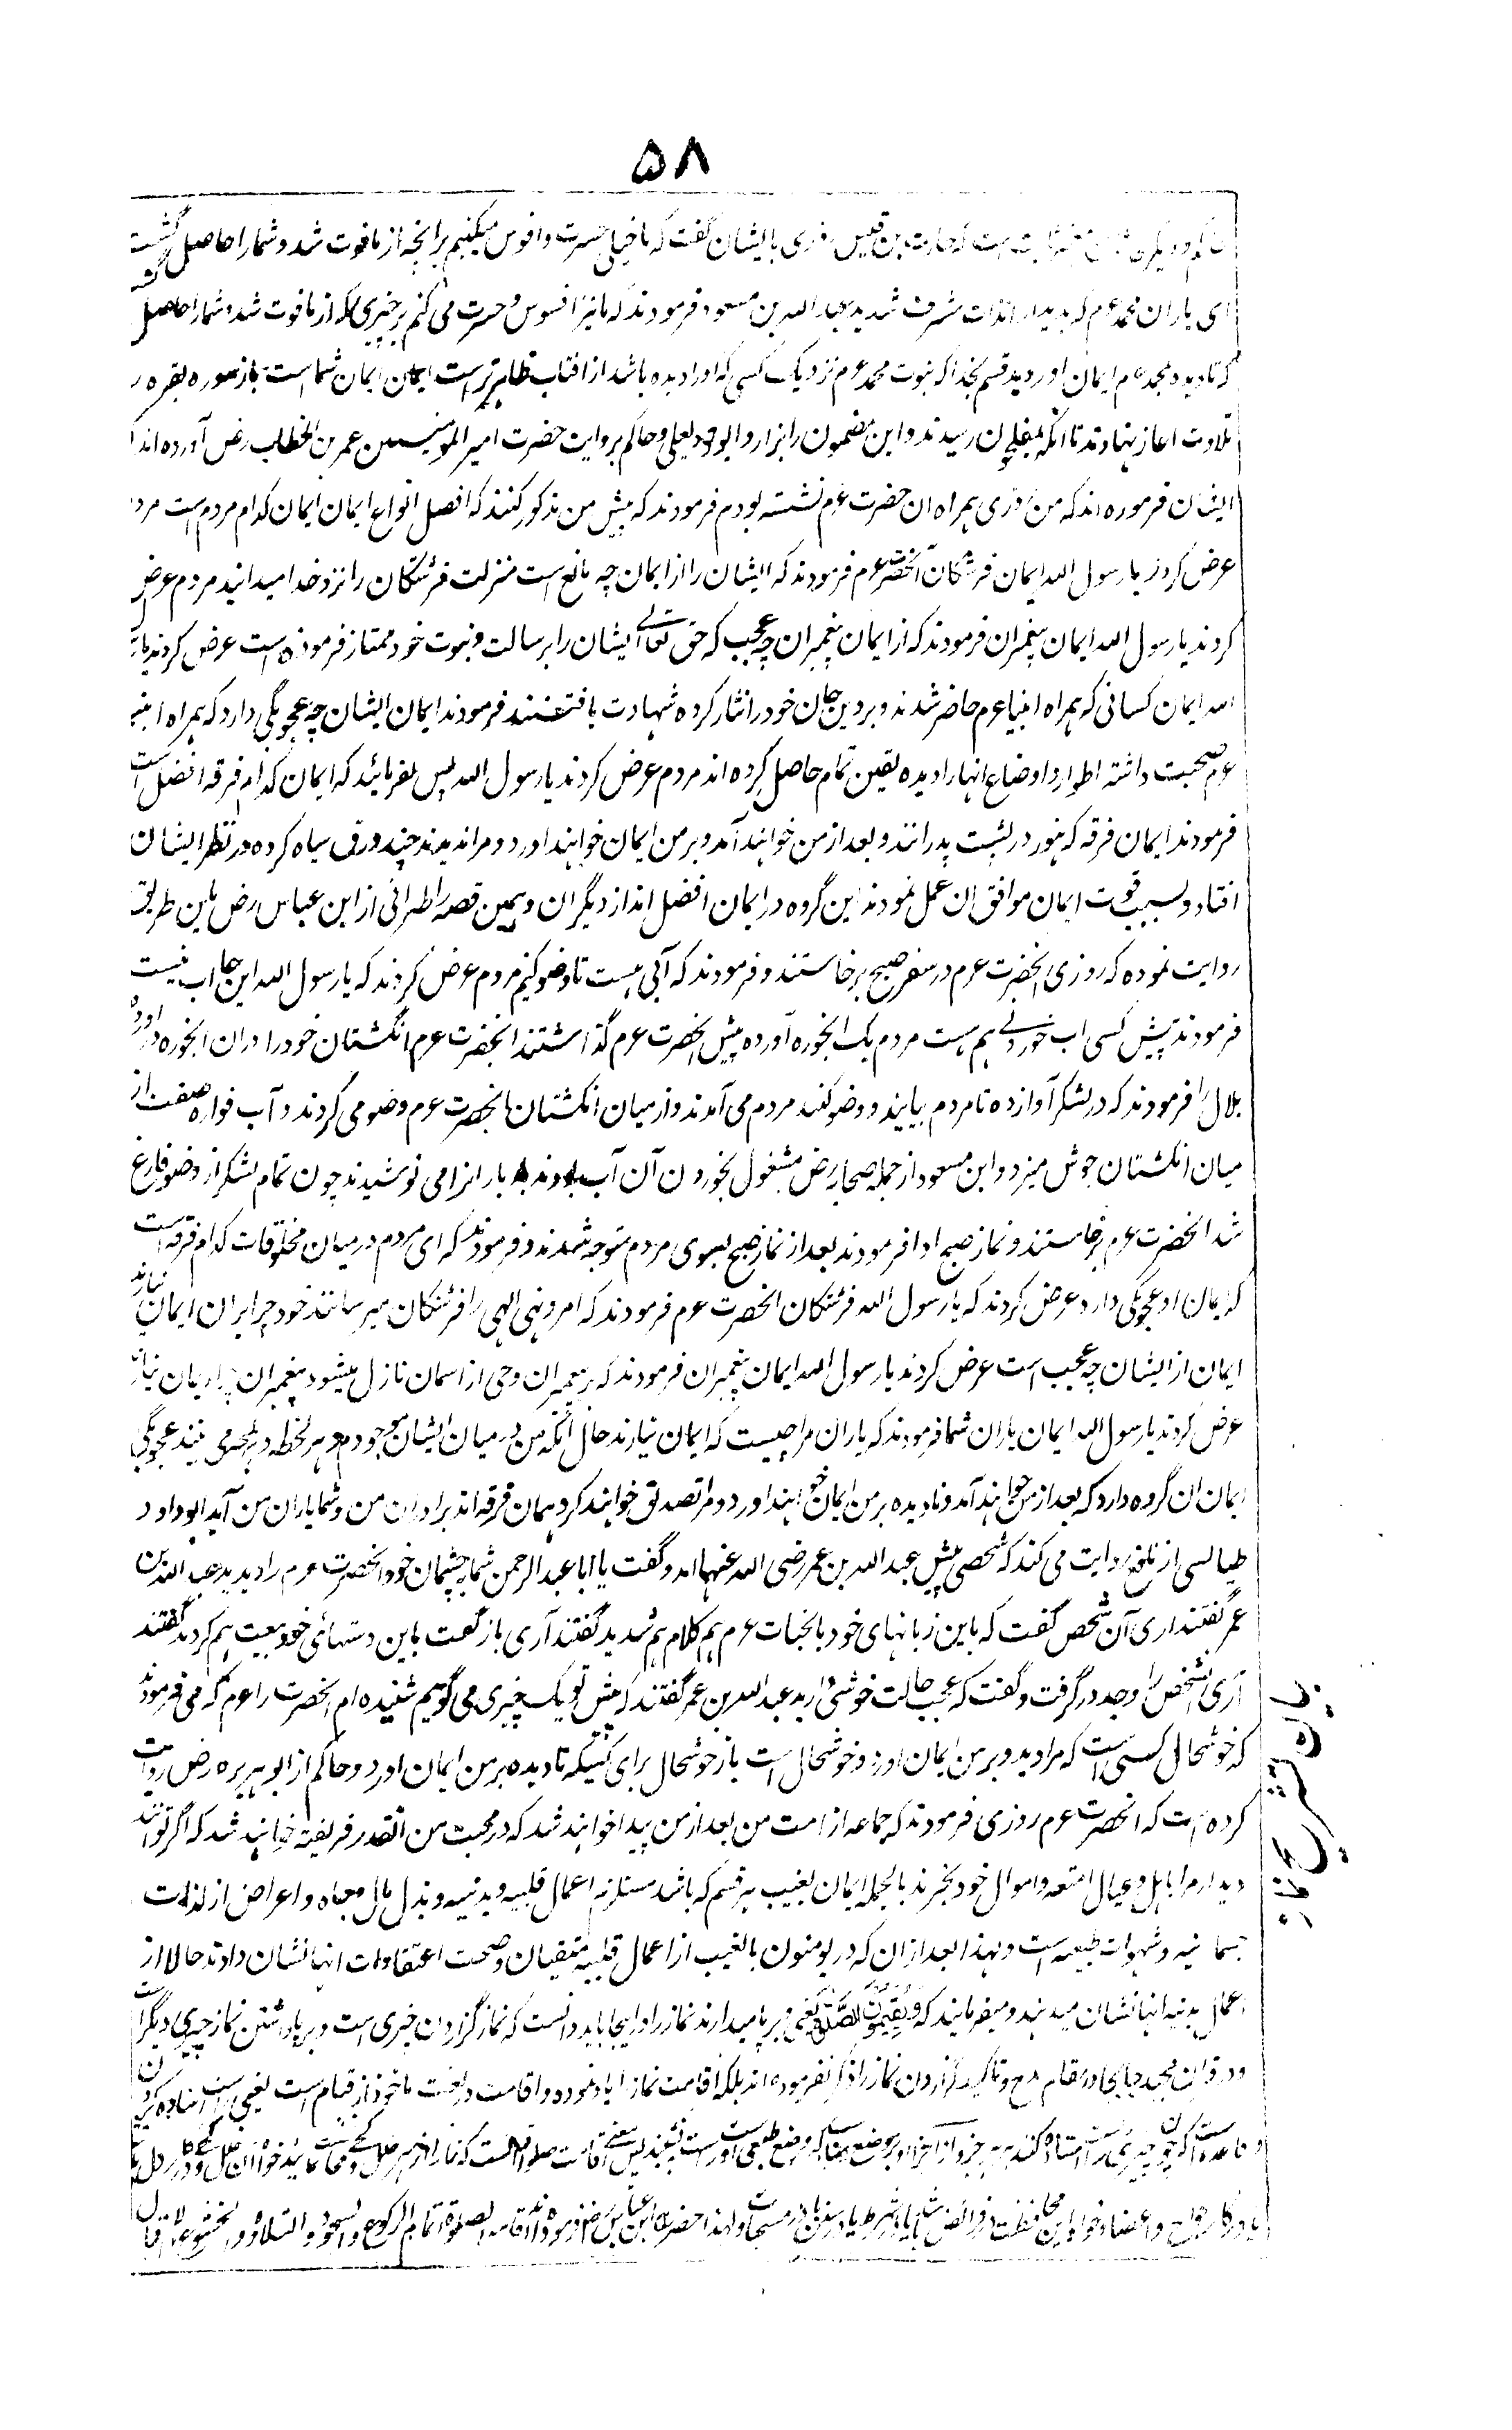 ۵۸
حارث بن قیس بایشان گفت که ما خیلی حسرت و افوس میکنیم برانچه از ما فوت شد و شمارا حاصل گشت
ای یاران محمد عم که بدیدار مشرف شدید عبد الله بن مسعود فرمودند که ما نیز افسوس و حسرت می کنم بر چیزی که از ما فوت شد و شمارا حاصل گشته
که نادیده بمحمد عم ایمان اوردید قسم بخدا که نبوت محمد عم نزدیک کسی که او را دیده باشد از افتاب ظاهر تر است ایمان ایمان شما است باز سوره بقره ر
تلاوت اغاز نهادند تا انکه بمفلحون رسیدند و این مضمون را بزار و ابو یعلی و حاکم بروایت حضرت امیر المومنین عمر بن الخطاب رض آورده اند
ایشان فرموده اند که من روزی همراه ان حضرت عم نشسته بودم فرمودند که پیش من مذکور کنند که افضل انواع ایمان ایمان کدام مردم است مرد
عرض کردند یا رسول الله ایمان فرشتگان آنحضرت عم فرمودند که ایشان را از ایمان چه مانع است منزلت فرشتکان را نزد خدا میدانید مردم عرض
کردند یا رسول الله ایمان پیغمبران فرمودند که از ایمان پیغمبران چه عجب که حق تعالے ایشان را برسالت و نبوت خود ممتاز فرموده است عرض کردند یا
الله ایمان کسانی که همراه انبیا عم حاضر شدند و بر دین جان خود را نثار کرده شهادت یافتند فرمودند ایمان ایشان چه عجوبگی دارد که همراه انبیا
عم صحبت داشته اطوار و اوضاع انها را دیده یقین تمام حاصل کرده اند مردم عرض کردند یا رسول الله پس بفرمائید که ایمان کدام فرقه افضل است
فرمودند ایمان فرقه که هنوز در پشت پدرانند و بعد از من خواهند آمد و بر من ایمان خواهند اورد و مرا ندیدند چند ورق سیاه کرده در نظر ایشان
افتاد و بسبب قوت ایمان موافق ان عمل نمودند این گروه در ایمان افضل اند از دیگران و همین قصه را طبرانی از ابن عباس رض باین طریق
روایت نموده که روزی انحضرت عم در سفر صبح برخاستند و فرمودند که آبی هست تا وضو کنیم مردم عرض کردند که یا رسول الله این جا اب نیست
فرمودند پیش کسی اب خوردنے هم هست مردم یک ابخوره آورده پیش انحضرت عم گذاشتند انحضرت عم انگشتان خود را در ان ابخوره در اورده
بلال را فرمودند که در لشکر آواز ده تا مردم بیایند و وضو کنند مردم می آمدند و از میان انکشتان انحضرت عم وضو می کردند و آب فواره صفت از
میان انکشتان جوش میزد و ابن مسعود از جمله صحابه رض مشغول بخوردن آن آب بودند بار بار انرا می نوشیدند چون تمام لشکر از وضو فارغ
شد انحضرت عم برخاستند و نماز صبح ادا فرمودند بعد از نماز صبح بسوی مردم متوجه شدند و فرمودند که ای مردم در میان مخلوقات کدام فرقه است
که ایمان او عجوبگی دارد عرض کردند که یا رسول الله فرشتکان انحضرت عم فرمودند که امر و نهی الهی را فرشتکان میرسانند خود چرا بران ایمان نیارند
ایمان از ایشان چه عجب است عرض کردند یا رسول الله ایمان پیغمبران فرمودند که بر پیغمبران وحی از اسمان نازل میشود پیغمبران چرا ایمان نیارند
عرض کردند یا رسول الله ایمان یاران شما فرمودند که یاران مرا چیست که ایمان نیارند حال آنکه من در میان ایشان موجودم و هر لحظه معجزه می بینند عجوبگی
ایمان ان گروه دارد که بعد از من خواهند آمد و نادیده بر من ایمان خواهند اورد و مرا تصدیق خواهند کرد همان فرقه اند برادران من و شما یاران من آید ابو داود
طیالسی از نافع روایت می کند که شخصی پیش عبد الله بن عمر رضی الله عنهما امد و گفت یا ابا عبد الرحمن شما بچشمان خود انحضرت عم را دیدید عبد الله بن
عمر گفتند اری آن شخص گفت که باین زبانهای خود بانجناب عم هم کلام هم شدید گفتند آری باز گفت باین دستهائی خود بیعت هم کردید گفتند
آری انشخص را وجد درگرفت و گفت که عجب حالت خوشی دارید عبد الله بن عمر گفتند که پیش تو یک چیزی می گویم شنیده ام انحضرت را عم که می فرمودند
که خوشحال کسی است که مرا دید و بر من ایمان اورد و خوشحال است باز خوشحال برای کسیکه نادیده بر من ایمان اورد و حاکم از ابو هریره رض روایت
کرده است که انحضرت عم روزی فرمودند که جماعه از امت من بعد از من پیدا خواهند شد که در محبت من انقدر فریفته خواهند شد که اگر توانند
دیدار مرا باهل و عیال امتعه و اموال خود بخرند بالجمله ایمان بغیب بهر قسم که باشد مستلزم اعمال قلبیه و بدنیه و بذل مال و جاه و اعراض از لذات
جسمانیه و شهوات طبیعیه است و لهذا بعد از ان که در یومنون بالغیب از اعمال قلبیه متقیان و صحت اعتقادات انها نشان دادند حالا از
اعمال بدنیه انها نشان میدهند و میفرمایند که وَیُقِیْمُوْنَ الصَّلٰوةَ یعنی برپا میدارند نماز را در اینجا باید دانست که نماز گزاردن چیزی است و برپا داشتن نماز چیزی دیگر است
و در قران مجید جا بجا در مقام مدح و تاکید گزاردن نماز را ذکر نفرموده اند بلکه اقامت نماز را یاد نموده و اقامت در لغت ماخوذ از قیام است یعنی راست استاده کردن
و قاعده است که چون چیزی را راست استاده کنند هر هر جزو از اجزا او بوضع مناسب که وضع طبیعی اوست نشیند پس معنے اقامت صلوة انست که نماز را از هر خلل و کجے محافظت نمائید خواه ان خلل و کجے در کار دل باشد
یا در کار جوارح و اعضا و خواه این محافظت در فرائض باشد یا در شرایط یا در سنن یا در مستحبات و لهذا حضرت ابن عباس رض فرموده اند اقامة الصلوة اتمام الرکوع والسجود والتلاوة والخشوع